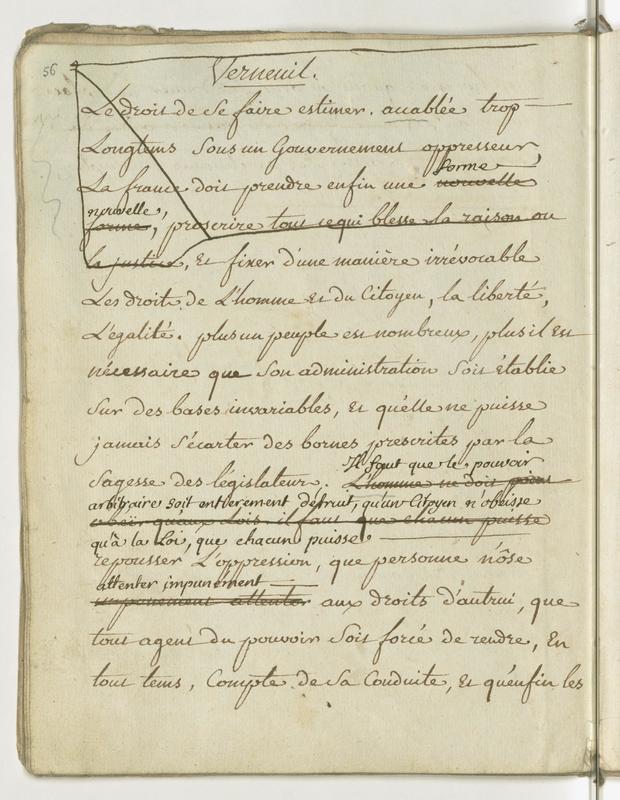 56
Verneuil.
Le droit de se faire estimer. accablée trop
Longtems sous un Gouvernement oppresseur
forme
La france doit prendre enfin une nouvelle
nouvelle,
forme, proscrire tout ce qui blesse la raison ou
la justice, Et fixer d'une manière irrévocable
Les droits de L'homme Et du Citoyen, la liberté,
L'égalité. plus un peuple est nombreux, plus il Est
nécessaire que son administration soit établie
sur des bases invariables, Et qu'elle ne puisse
jamais s'écarter des bornes prescrites par la
Il faut que le pouvoir
Sagesse des législateurs. L'homme ne doit point
arbitraire soit entierement détruit, qu'un Citoyen n'obéisse
obéir qu'aux Lois. il faut que chacun puisse
qu'à la Loi, que chacun puisse
repousser L'oppression, que personne n'ôse
attenter impunement
impunement attenter aux droits d'autrui, que
tout agent du pouvoir soit forcé de rendre, En
tout tems, Compte de sa Conduite, Et qu'enfin les